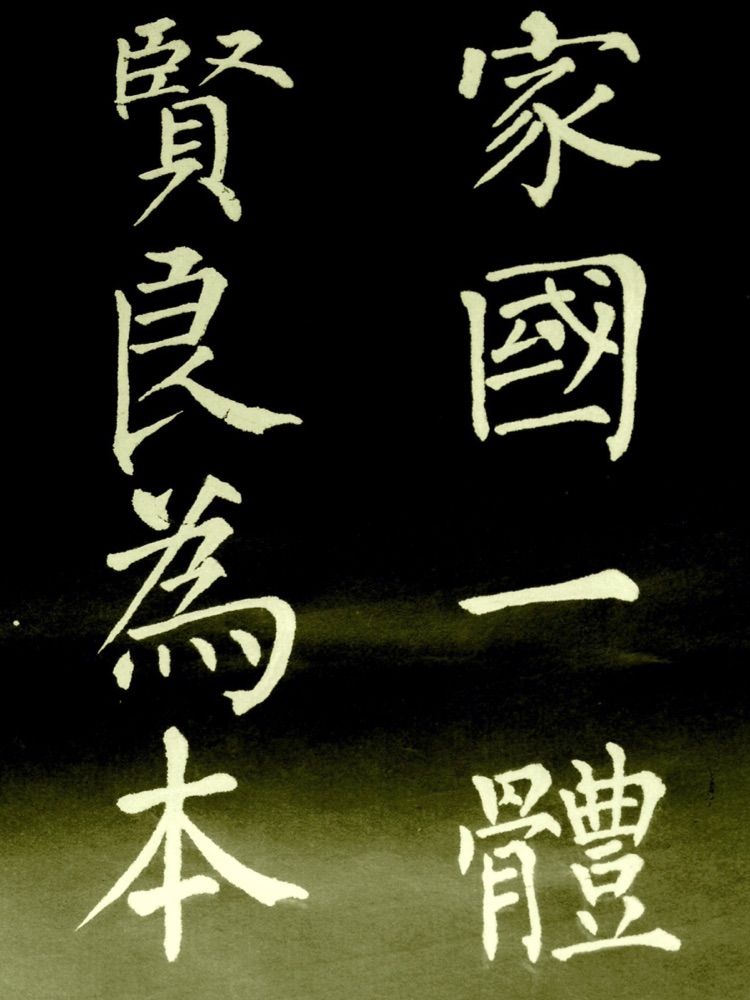 家國一體
賢良為本